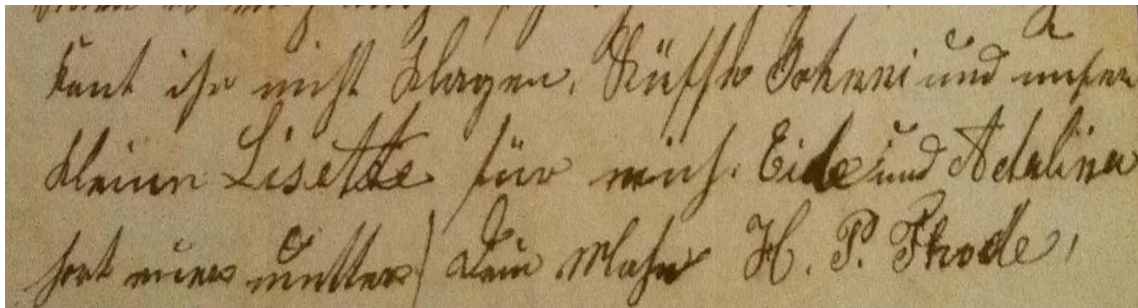 kant ihr nicht klagen. Küsse Johnni und unser
kleinn Lisette für mich. Eide und Adelina
hort eures mutter) Dein Mahn H. P. Thode,